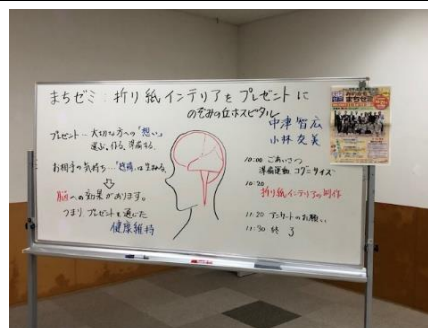 まちゼミ：折り紙インテリアをプレゼントに
のぞみの丘ホスピタル
中津智広
小林友美
プレゼント…大切な方への“想い”
選ぶ、作る、準備する。
お相手の気持ち…“感情”は生まれる。
⇩
脳への効果があります。
つまり、プレゼントを通じた
健康維持
10:00 ごあいさつ
準備運動 コグニサイズ
10:20
折り紙インテリアの制作
11:20 アンケートのお願い
11:30 終了
まちゼミ